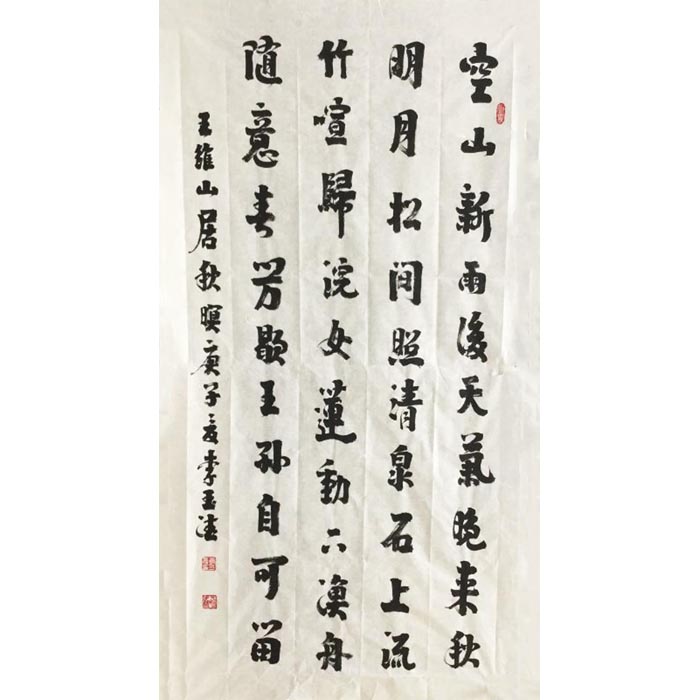 空山新雨後天氣晚来秋
明月松间照清泉石上流
竹喧歸浣女蓮動下漁舟
随意春芳歇王孙自可留
王維山居秋暝庚子夏李玉